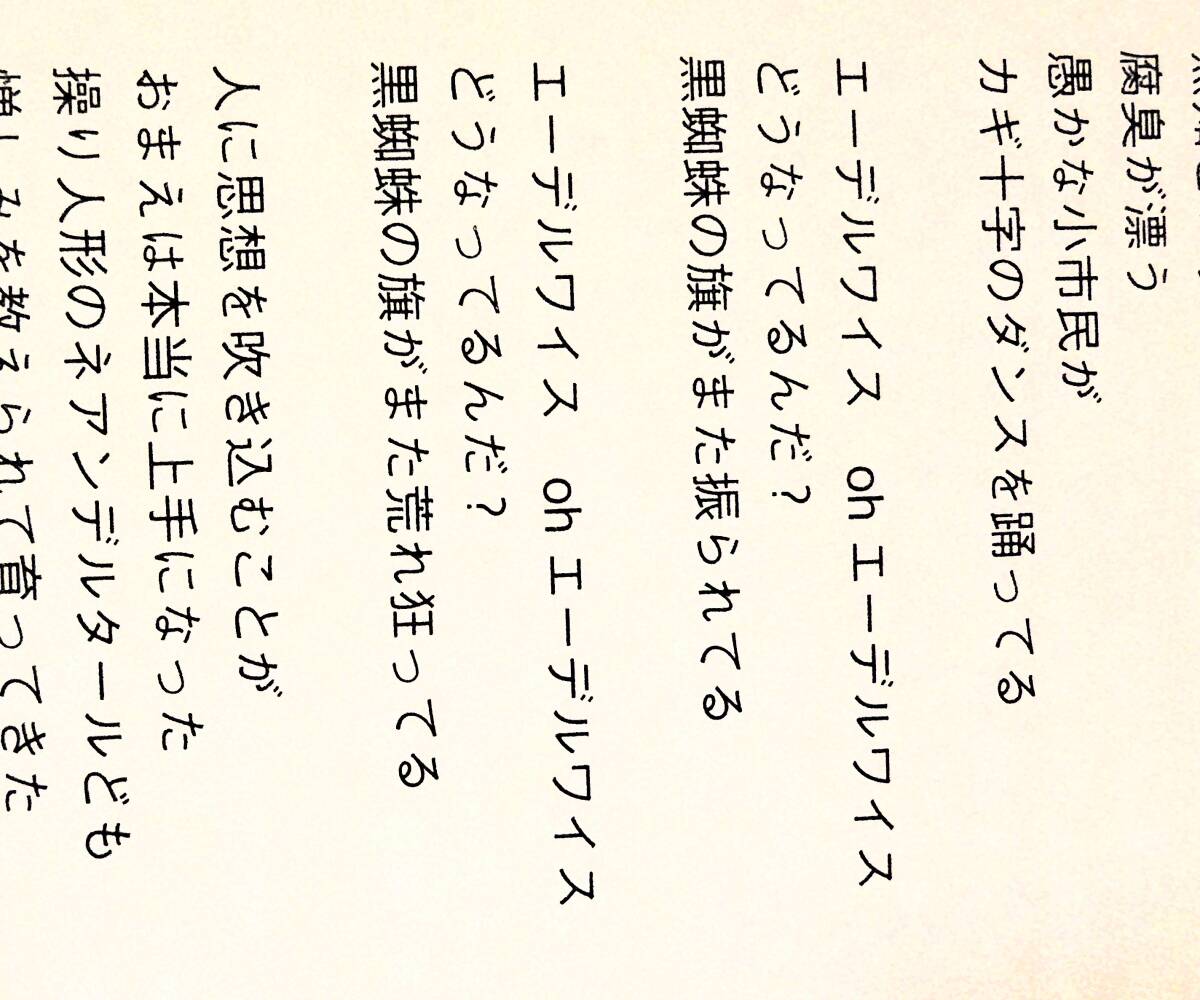 腐臭が漂う
愚かな小市民が
カギ十字のダンスを踊ってる
エーデルワイス　oh エーデルワイス
どうなってるんだ？
黒蜘蛛の旗がまた振られてる
エーデルワイス　oh エーデルワイス
どうなってるんだ？
黒蜘蛛の旗がまた荒れ狂ってる
人に思想を吹き込むことが
おまえは本当に上手になった
操り人形のネアンデルタールども
憎しみを教えられて育ってきた